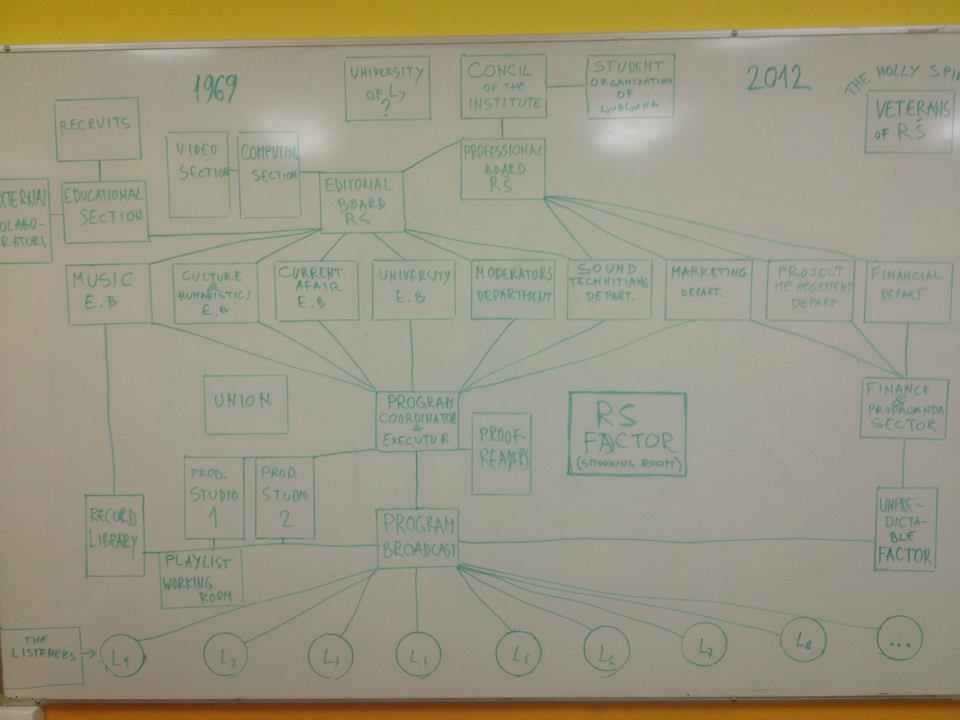 1969
UNIVERSITY
OF L7
?
CONCIL
OF THE
INSTITUTE
STUDENT
ORGANIZATION
OF
2012
THE HOLLY
VETERANS
OF RŠ
RECRUITS
VIDEO
SECTION
COMPUTING
SECTION
EDITORIAL
BOARD
RŠ
PROFESSIONAL
BOARD
RŠ
EDUCATIONAL
SECTION
MUSIC
E.B
CULTURE
&
HUMANISTICS
E.B
CURRENT
AFAIR
E.B
UNIVERSITY
E.B
MODERATORS
DEPARTMENT
SOUND
TECHNITIANS
DEPART.
MARKETING
DEPART.
PROJECT
DEPART
FINANCIAL
DEPART
UNION
PROGRAM
COORDINATOR
&
EXECUTOR
PROOF-
READERS
RS
FACTOR
(SMOKING ROOM)
FINANCE
&
PROPAGANDA
SECTOR
PROD.
STUDIO
1
PROD.
STUDIO
2
RECORD
LIBRARY
PLAYLIST
WORKING
ROOM
PROGRAM
BROADCAST
UNPRE-
DICTA-
BLE
FACTOR
THE
LISTENERS
L1
L2
L3
L5
L6
L7
L8
...